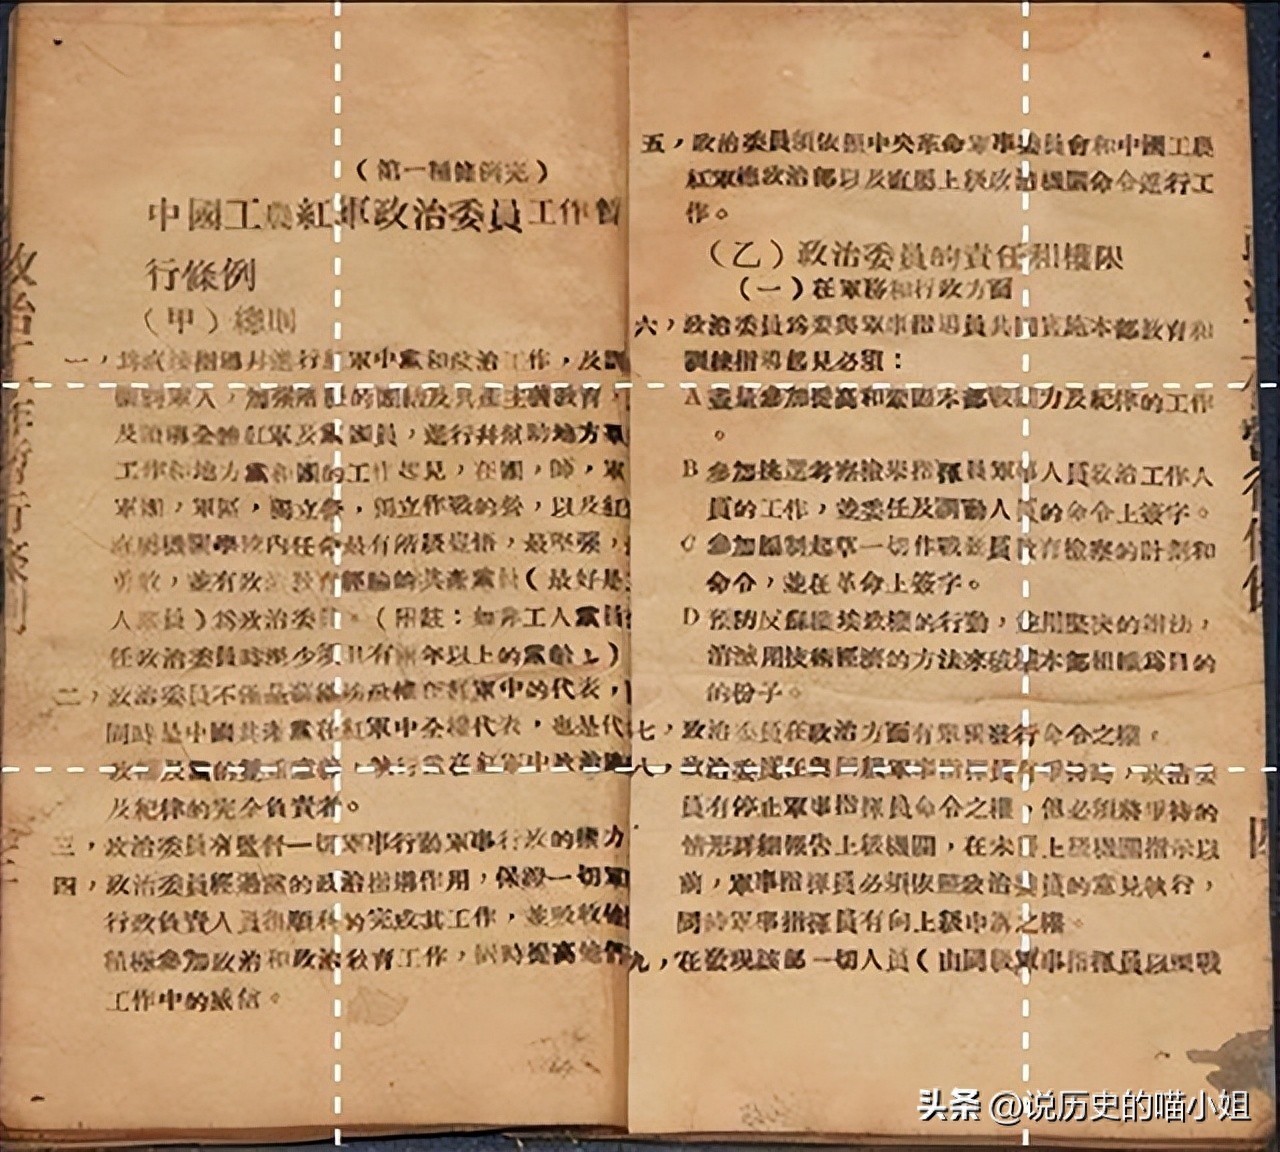 （第一種條例完）
中國工農紅軍政治委員工作暫
行條例
（甲）總則
一，爲直接指導并進行紅軍中黨和政治工作，及訓
軍人，加强階級的團結及共產主義教育，
及領導全體紅軍及黨團員，進行幷幫助地方
工作和地方黨和團的工作起見，在團，師，軍
軍團，軍區，獨立營，獨立作戰的營，以及紅
直屬機關學校內任命最有階級覺悟，最堅强，
勇敢，並有政治教育經驗的共產黨員（最好是
人黨員）爲政治委員。（附註：如非工人黨員
任政治委員時至少須具有兩年以上的黨齡。）
二，政治委員不僅是蘇維埃政權在紅軍中的代表，
同時是中國共產黨在紅軍中全權代表，也是代
及紀律的完全負責者。
三，政治委員有監督一切軍事行動軍事行政的權力
四，政治委員經過黨的政治指導作用，保證一切軍
行政負責人員得順利的完成其工作，並吸收他
積極參加政治和政治教育工作，同時提高他們
工作中的威信。
五，政治委員須依照中央革命軍事委員會和中國工農
紅軍總政治部以及直屬上級政治機關命令進行工
作。
（乙）政治委員的責任和權限
（一）在軍務和行政方面
六，政治委員爲要與軍事指導員共同實施本部教育和
訓練指導起見必須：
A 盡量參加提高和鞏固本部戰鬥力及紀律的工作
。
B 參加挑選考察檢舉指揮員軍事人員政治工作人
員的工作，並委任及調動人員的命令上簽字。
C 參加編制起草一切作戰並員教育檢察的計劃和
命令，並在革命上簽字。
D 預防反蘇維埃政權的行動，並用堅决的辦法，
消滅用技術經濟的方法來破壞本部組織爲目的
的份子。
七，政治委員在政治方面有單獨發行命令之權。
八，政治委員在與同級軍事指揮員有爭持時，政治委
員有停止軍事指揮員命令之權，但必須將爭持的
情形詳細報告上級機關，在未得上級機關指示以
前，軍事指揮員必須依照政治委員的意見執行，
同時軍事指揮員有向上級申訴之權。
九，在發現該部一切人員（由同級軍事指揮員以至戰
头条 @说历史的喵小姐